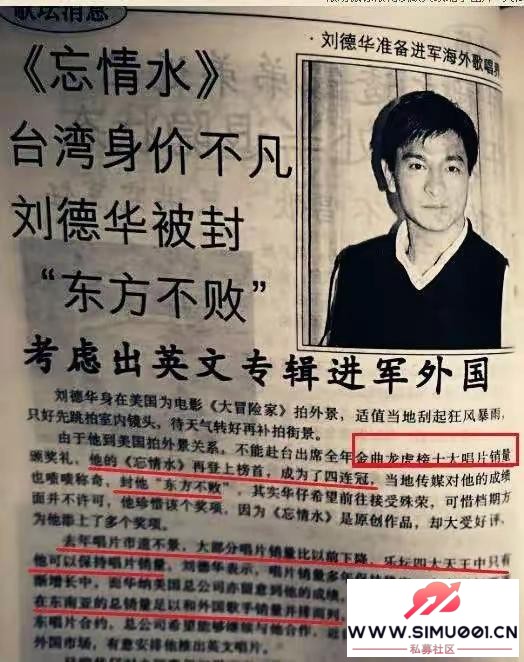 歌坛消息
·刘德华准备进军海外歌唱界
《忘情水》
台湾身价不凡
刘德华被封
“东方不败”
考虑出英文专辑进军外国
刘德华身在美国为电影《大冒险家》拍外景，适值当地刮起狂风暴雨，
只好先跳拍室内镜头，待天气转好再补拍街景。
由于他到美国拍外景关系，不能赴台出席全年金曲龙虎榜十大唱片销量
颁奖礼，他的《忘情水》再登上榜首，成为了四连冠，当地传媒对他的成绩
也啧啧称奇，封他“东方不败”，其实华仔希望前往接受殊荣，可惜档期方
面并不许可，他珍惜该个奖项，因为《忘情水》是原创作品，却大受好评，
为他添上了多个奖项。
去年唱片市道不景，大部分唱片销量比以前下降，乐坛四大天王中只有
他可以保持唱片销量，刘德华表示，唱片销量多年保持
渐增长中，而华纳美国总公司亦留意到他的成绩，
在东南亚的总销量足以和外国歌手销量并排而
东唱片合约，总公司希望能够继续与他合作，近
外国市场，有意安排他推出英文唱片。
WWW.SIMU001.CN
私募社区